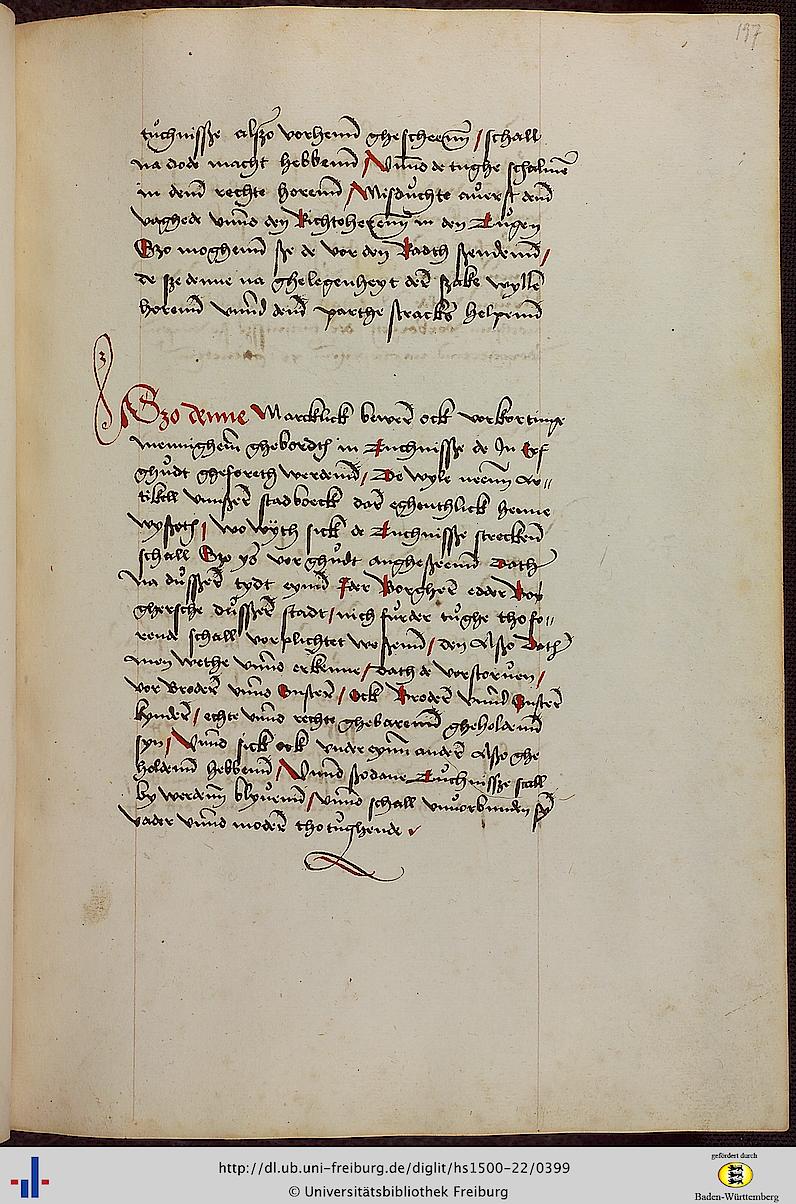 197
tůchnisße alßzo vorhenn ghescheenn / schall
na dode macht hebbenn / Vnnd de tughe schalmē
in denn rechte horenn / Misduchte auerst denn
vaghede vnnd den Richtoherenn in den Tugen
Szo moghenn sze de vor den Radth szendenn /
de sze denne na ghelegenheyt der szake wyllē
horenn vnnd denn parthe stracks helpenn
3
ASzo denne Marcklick bewer ock vorkortinge
mennighem ghebordth in Tuchnisße de In Erf
ghudt gheforeth werdenn / De wyle nenn Ar=
tikell vnnser stadboeck dar eghenthlick henne
wyszeth / wo wyth sick de Tuchnisße strecken
schall Szo ys vor ghudt angheszeenn Dath
na dusßer tydt eynn Jder Borgher edder Bor
ghersche dusßer stadt / nich furder tughe tho fo=
rende schall vorplichtet weszenn / den Alszo Dath
men wethe vnnd erkenne / dath de vorstoruen /
vor Broder vnnd Suster / Ock Broder vnnd Suster
kynder / echte vnnd rechte ghebarenn gheholdenn
syn / Vnnd sick ock vnder eynn ander Alszo ghe
holdenn hebbenn / Vnnd szodane Tuchnisße scall
by werdenn blyuenn / vnnd schall vnuorbunden syn
vader vnnd moder tho tughende
http://dl.ub.uni-freiburg.de/diglit/hs1500-22/0399
© Universitätsbibliothek Freiburg
gefördert durch
Baden-Württemberg